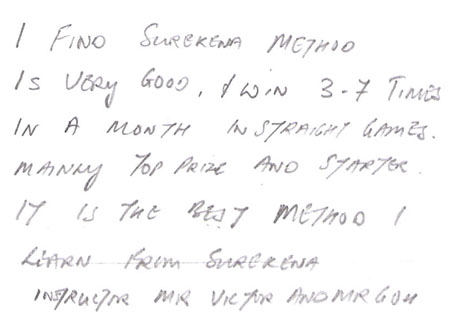 I FIND SUREKENA METHOD
IS VERY GOOD, I WIN 3-7 TIMES
IN A MONTH IN STRAIGHT GAMES.
MAINLY TOP PRIZE AND STARTER.
IT IS THE BEST METHOD I
LEARN FROM SUREKENA
INSTRUCTOR MR VICTOR AND MR GOH